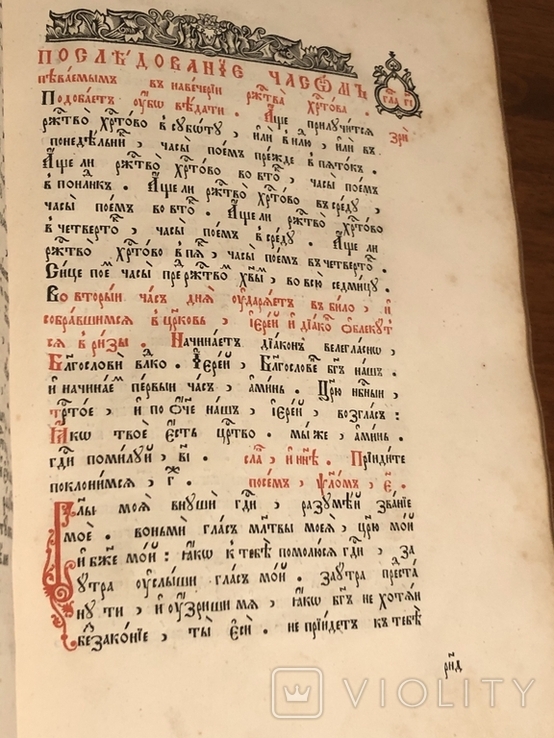 ПОСЛѢДОВАНІЕ ЧАСѠМЪ
пѣваемымъ въ навечеріи ржⷭ҇тва хрⷭ҇това.
Подобаетъ ᲂу҆́бѡ вѣдати. А҆́ще прилꙋчится
зрѝ
ржⷭ҇тво̀ хрⷭ҇то́во въ сꙋббѡ́тꙋ, и҆лѝ в нлю, и҆лѝ въ
понедѣ́льни, часы̀ пое́мъ пре́жде в пято́къ.
А҆́ще ли ржⷭ҇тво̀ хрⷭ҇то́во во вто, часы̀ пое́мъ
в понⷣлникъ. А҆́ще ли ржⷭ҇тво̀ хрⷭ҇то́во въ средꙋ,
часы̀ пое́мъ во вто. А҆́ще ли ржⷭ҇тво̀ хрⷭ҇то́во
в четверто, часы̀ пое́мъ в средꙋ. А҆́ще ли
ржⷭ҇тво̀ хрⷭ҇то́во в пѧ, часы̀ пое́мъ въ четверто.
Си́це поеⷨ часы̀ преⷣ ржⷭ҇твоⷨ хв҃ы́мъ, во всю̀ седмицꙋ.
Во вторы́и ча́съ днѧ̀ ᲂу҆дарѧ́етъ в би́ло, и҆
собра́вшимсѧ в це́рковь, і҆ере́й и҆ дїа́конъ ѡ҆блекꙋ́т
сѧ в ри́зы. Начина́етъ дїа́конъ велегла́снѡ,
Блг҃ослови̑ влⷣко. І҆ере́й, Блг҃ослове́нъ бг҃ъ на́шъ.
и҆ начина́еⷨ пе́рвыи ча́съ, а҆ми́нь. Цр҃ю̀ нбⷭ҇ныи,
трⷭ҇то́е, и҆ по ѻ҆́ч҃е на́шъ, і҆ере́й, возгла́съ:
Ꙗ҆́кѡ твоѐ є҆́сть црⷭ҇тво. мы́ же, а҆ми́нь.
гдⷭ҇и поми́лꙋй, в҃і. сла́ва, и҆ нн҃ѣ. Прїиди́те
поклони́мсѧ, г҃. посе́мъ, ѱало́мъ, є҃.
Гл҃ы моѧ̀ внꙋшѝ гдⷭ҇и, разꙋмѣ́й зва́нїе
моѐ. вонмѝ гла́съ мл҃твы моеѧ̀, цр҃ю̀ мо́й
и҆ бж҃е мо́й: ꙗ҆́кѡ к тебѣ̀ помолю́сѧ гдⷭ҇и, за
ᲂу҆́тра ᲂу҆слы́ши гла́съ мо́й. заᲂу҆́тра преста́
нꙋ ти, и҆ ᲂу҆́зриши мѧ, ꙗ҆́кѡ бг҃ъ не хотѧ́й
беззако́нїе, ты̀ є҆сѝ. не прїи́детъ к тебѣ̀
рн҃д
VIOLITY